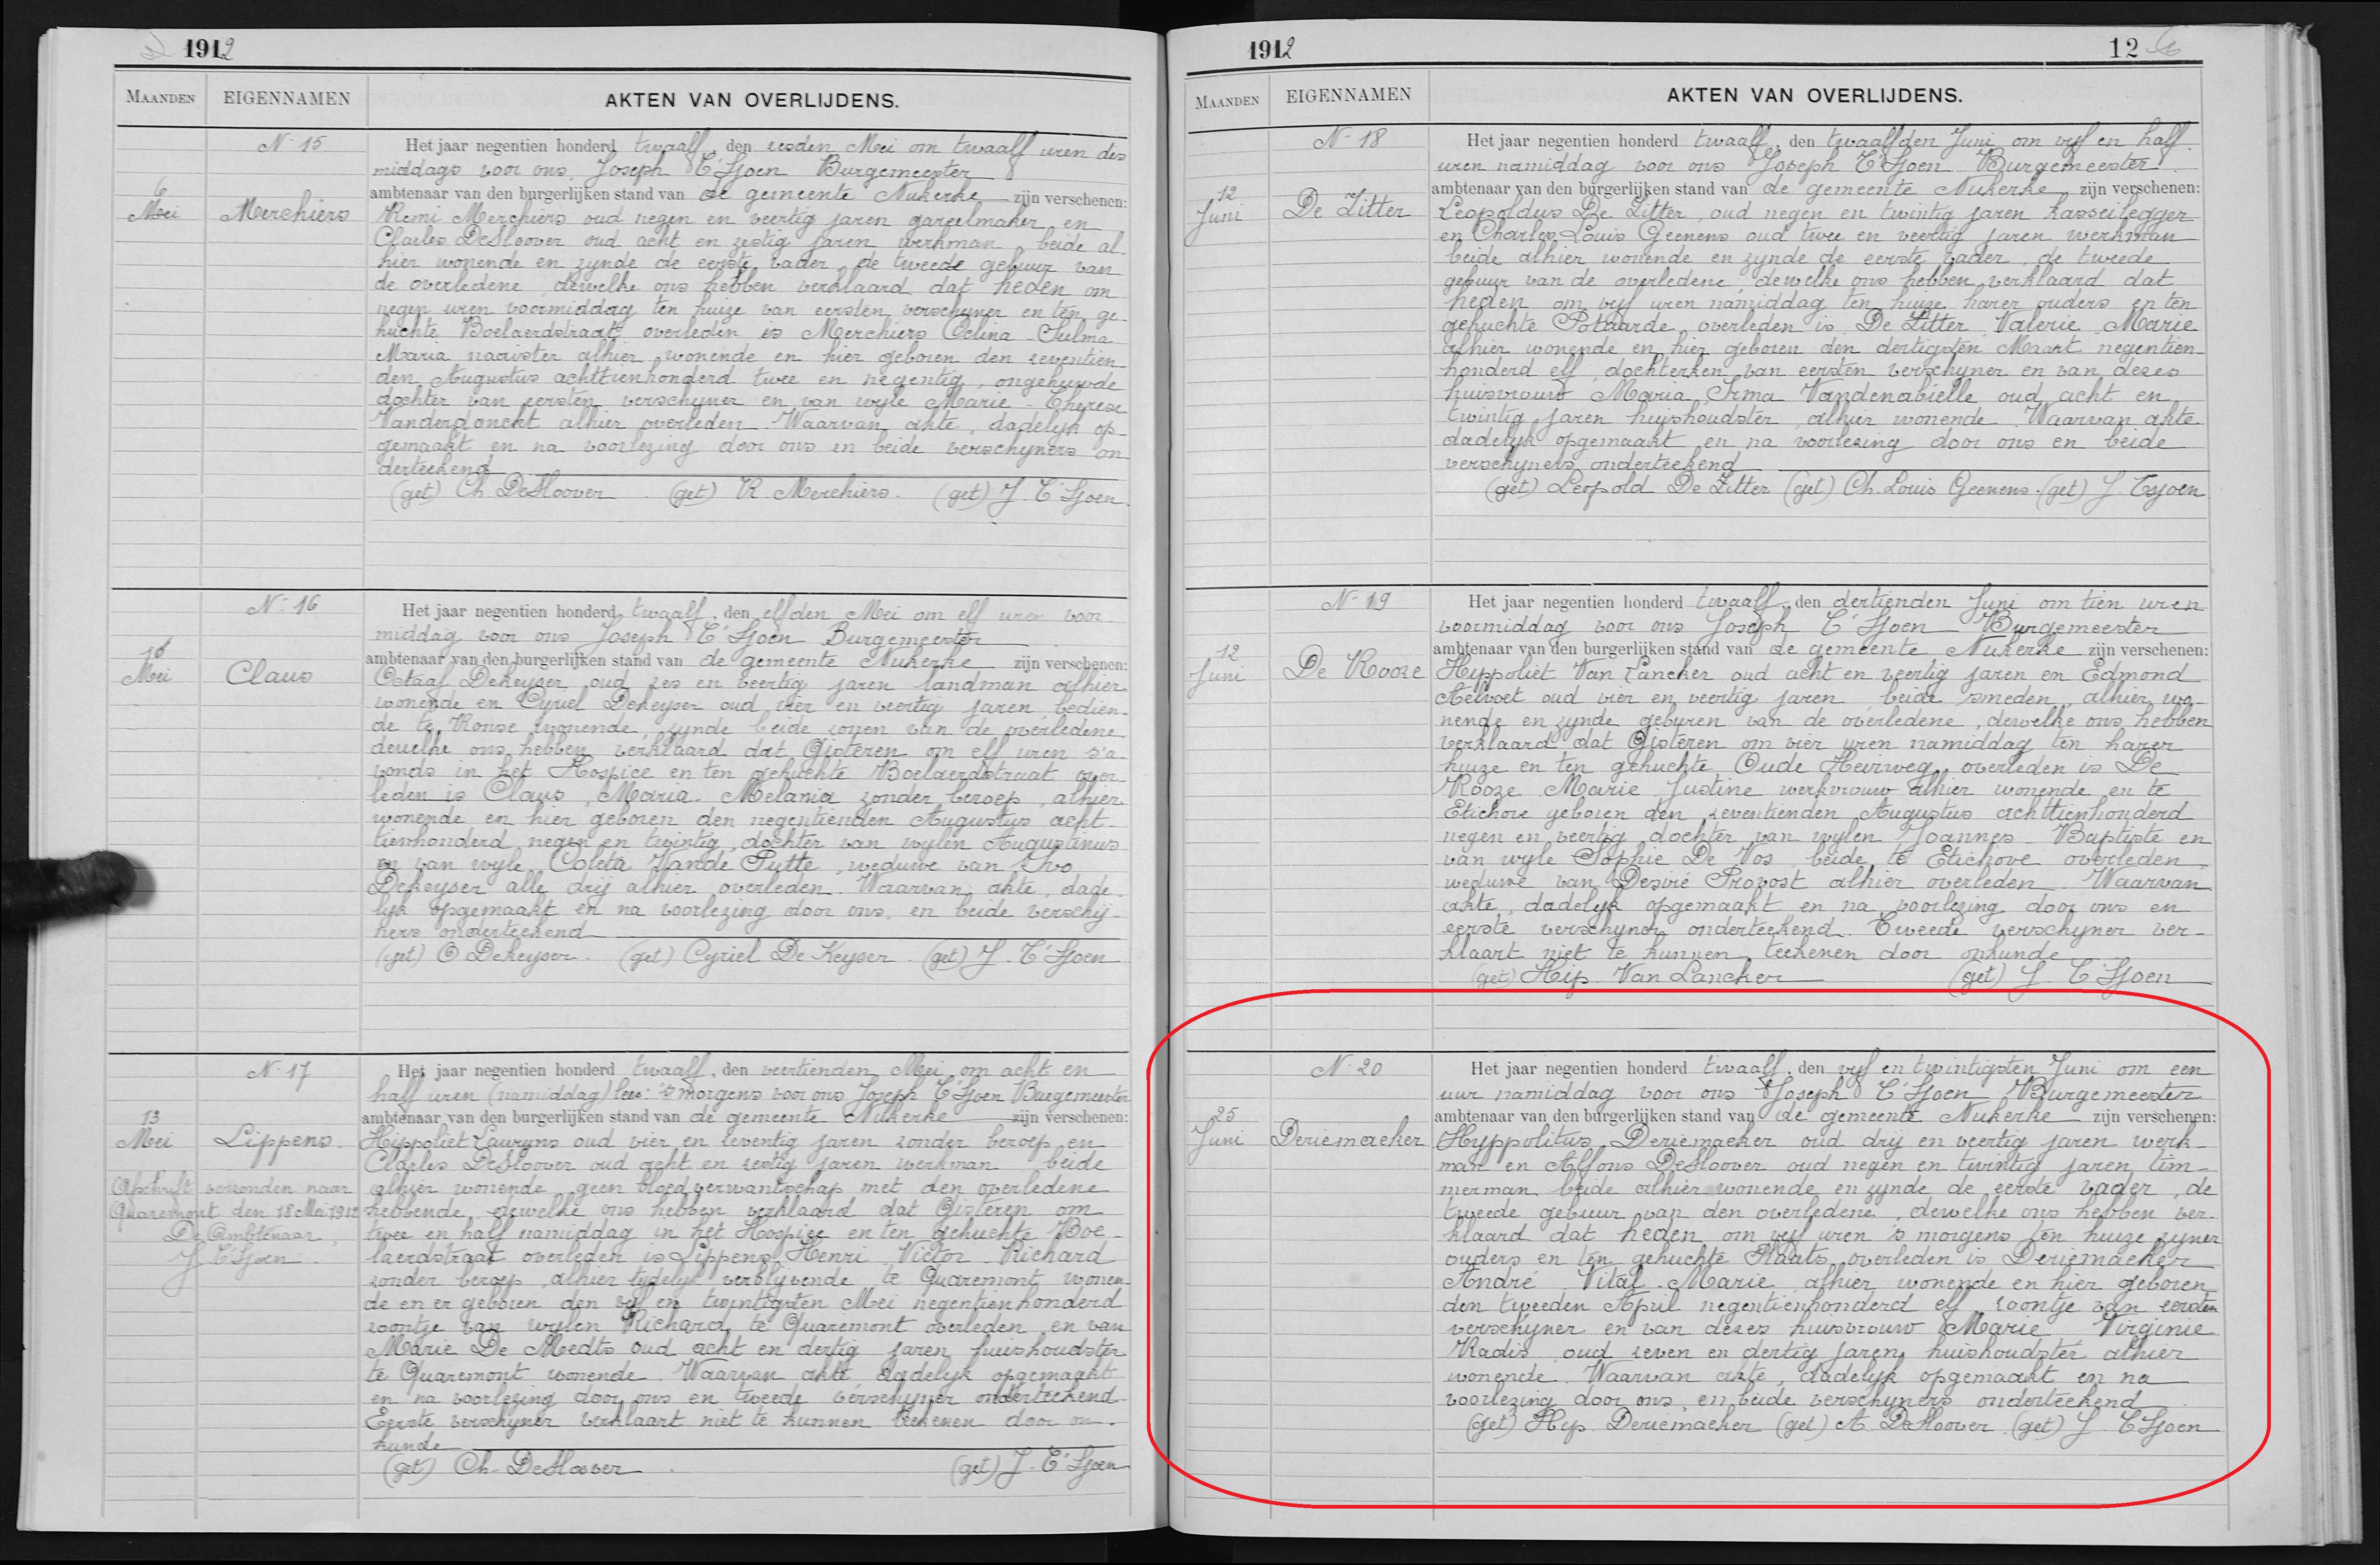 1912
MAANDEN EIGENNAMEN AKTEN VAN OVERLIJDENS.
N- 15
6
Mei
Merchiers
Het jaar negentien honderd twaalf, den zesden Mei om twaalf uren des
middags voor ons, Joseph T'Sjoen Burgemeester
ambtenaar van den burgerlijken stand van de gemeente Nukerke zijn verschenen:
Remi Merchiers oud negen en veertig jaren gareelmaker en
Charles DeSloover oud acht en zestig jaren werkman beide al-
hier wonende en zynde de eerste vader, de tweede gebuur van
de overledene, dewelke ons hebben verklaard dat heden om
negen uren voormiddag ten huize van eersten verschyner en ten ge-
huchte Boelaerdstraat overleden is Merchiers Celina - Sulma
Maria naaister alhier wonende en hier geboren den zeventien-
den Augustus achttienhonderd twee en negentig, ongehuwde
dochter van eersten verschyner en van wyle Marie - Therese
Vanderdonckt alhier overleden. Waarvan akte, dadelyk op-
gemaakt en na voorlezing door ons en beide verschyners on-
derteekend
(get) Ch. DeSloover. (get) R. Merchiers. (get) J. T'Sjoen.
N- 16
10
Mei
Claus
Het jaar negentien honderd twaalf, den elfden Mei om elf uren voor-
middag voor ons Joseph T'Sjoen Burgemeester
ambtenaar van den burgerlijken stand van de gemeente Nukerke zijn verschenen:
Octaaf Dekeyser oud zes en veertig jaren landman alhier
wonende en Cyriel Dekeyser oud vier en veertig jaren, bedien-
de te Ronse wonende, zynde beide zonen van de overledene
dewelke ons hebben verklaard dat Gisteren om elf uren s'a-
vonds in het Hospice en ten gehuchte Boelaerdstraat over-
leden is Claus, Maria - Melania zonder beroep, alhier
wonende en hier geboren den negentienden Augustus acht-
tienhonderd negen en twintig, dochter van wylen Augustinus
en van wyle Coleta Vande Putte, weduwe van Ivo
Dekeyser alle drij alhier overleden. Waarvan akte, dade-
lyk opgemaakt en na voorlezing door ons, en beide verschij-
ners onderteekend
(get) O Dekeyser. (get) Cyriel De Keyser. (get) J. T'Sjoen
N- 17
13
Mei
Lippens
Afschrift verzonden naar
Quaremont den 18 Mei 1912
De Ambtenaar,
J T'Sjoen.
Het jaar negentien honderd twaalf, den veertienden Mei, om acht en
half uren (namiddag) lees: 's morgens voor ons Joseph T'Sjoen Burgemeester
ambtenaar van den burgerlijken stand van de gemeente Nukerke zijn verschenen:
Hippoliet Lauryns oud vier en zeventig jaren zonder beroep en
Charles DeSloover oud acht en zestig jaren werkman beide
alhier wonende geen bloedverwantschap met den overledene
hebbende, dewelke ons hebben verklaard dat Gisteren om
twee en half namiddag in het Hospice en ten gehuchte Boe-
laerdstraat overleden is Lippens Henri Victor Richard
zonder beroep, alhier tydelyk verblijvende te Quaremont wonen-
de en er geboren den vyf en twintigsten Mei negentienhonderd
zoontje van wylen Richard te Quaremont overleden en van
Marie De Medts oud acht en dertig jaren huishoudster
te Quaremont wonende. Waarvan akte dadelyk opgemaakt
en na voorlezing door ons en tweede verschyner onderteekend.
Eerste verschyner verklaart niet te kunnen teekenen door on-
kunde
(get) Ch. DeSloover. (get) J. T'Sjoen
1912 12
MAANDEN EIGENNAMEN AKTEN VAN OVERLIJDENS.
N- 18
12
Juni
De Zitter
Het jaar negentien honderd twaalf, den twaalfden Juni om vyf en half
uren namiddag voor ons Joseph T'Sjoen Burgemeester
ambtenaar van den burgerlijken stand van de gemeente Nukerke zijn verschenen:
Leopoldus De Zitter, oud negen en twintig jaren kasseilegger
en Charles Louis Geenens oud twee en veertig jaren werkman
beide alhier wonende en zynde de eerste vader, de tweede
gebuur van de overledene, dewelke ons hebben verklaard dat
heden om vyf uren namiddag ten huize harer ouders en ten
gehuchte Potaarde overleden is De Zitter Valerie Marie
alhier wonende en hier geboren den dertigsten Maart negentien-
honderd elf, dochterken van eersten verschyner en van dezes
huisvrouw Maria Irma Vandenabielle oud acht en
twintig jaren huishoudster, alhier wonende. Waarvan akte
dadelyk opgemaakt en na voorlezing door ons en beide
verschyners onderteekend
(get) Leopold De Zitter (get) Ch. Louis Geenens. (get) J. Tsjoen
N- 19
12
Juni
De Rooze
Het jaar negentien honderd twaalf, den dertienden Juni om tien uren
voormiddag voor ons Joseph T'Sjoen Burgemeester
ambtenaar van den burgerlijken stand van de gemeente Nukerke zijn verschenen:
Hyppoliet Van Lancker oud acht en veertig jaren en Edmond
Aelvoet oud vier en veertig jaren, beide smeden, alhier wo-
nende en zynde geburen van de overledene, dewelke ons hebben
verklaard dat Gisteren om vier uren namiddag ten harer
huize en ten gehuchte Oude Heirweg overleden is De
Rooze Marie Justine werkvrouw alhier wonende en te
Etichove geboren den zeventienden Augustus achttienhonderd
negen en veertig, dochter van wylen Joannes - Baptiste en
van wyle Sophie De Vos, beide te Etichove overleden,
weduwe van Desiré Provost alhier overleden. Waarvan
akte, dadelyk opgemaakt en na voorlezing door ons en
eerste verschyner onderteekend. Tweede verschyner ver-
klaart niet te kunnen teekenen door onkunde
(get) Hip. Van Lancker (get) J. T'Sjoen
N- 20
25
Juni
Deriemaeker
Het jaar negentien honderd twaalf, den vyf en twintigsten Juni om een
uur namiddag voor ons Joseph T'Sjoen Burgemeester
ambtenaar van den burgerlijken stand van de gemeente Nukerke zijn verschenen:
Hyppolitus Deriemaeker oud drij en veertig jaren werk-
man en Alfons DeSloover oud negen en twintig jaren, tim-
merman beide alhier wonende en zynde de eerste vader, de
tweede gebuur van den overledene, dewelke ons hebben ver-
klaard dat heden om vyf uren 's morgens ten huize zyner
ouders en ten gehuchte Plaats overleden is Deriemaeker
André Vital - Marie, alhier wonende en hier geboren
den tweeden April negentienhonderd elf, zoontje van eersten
verschyner en van dezes huisvrouw Marie Virginie
Radis, oud zeven en dertig jaren huishoudster alhier
wonende. Waarvan akte, dadelyk opgemaakt en na
voorlezing door ons, en beide verschyners onderteekend
(get) Hip. Deriemaeker (get) A. DeSloover. (get) J. T'Sjoen